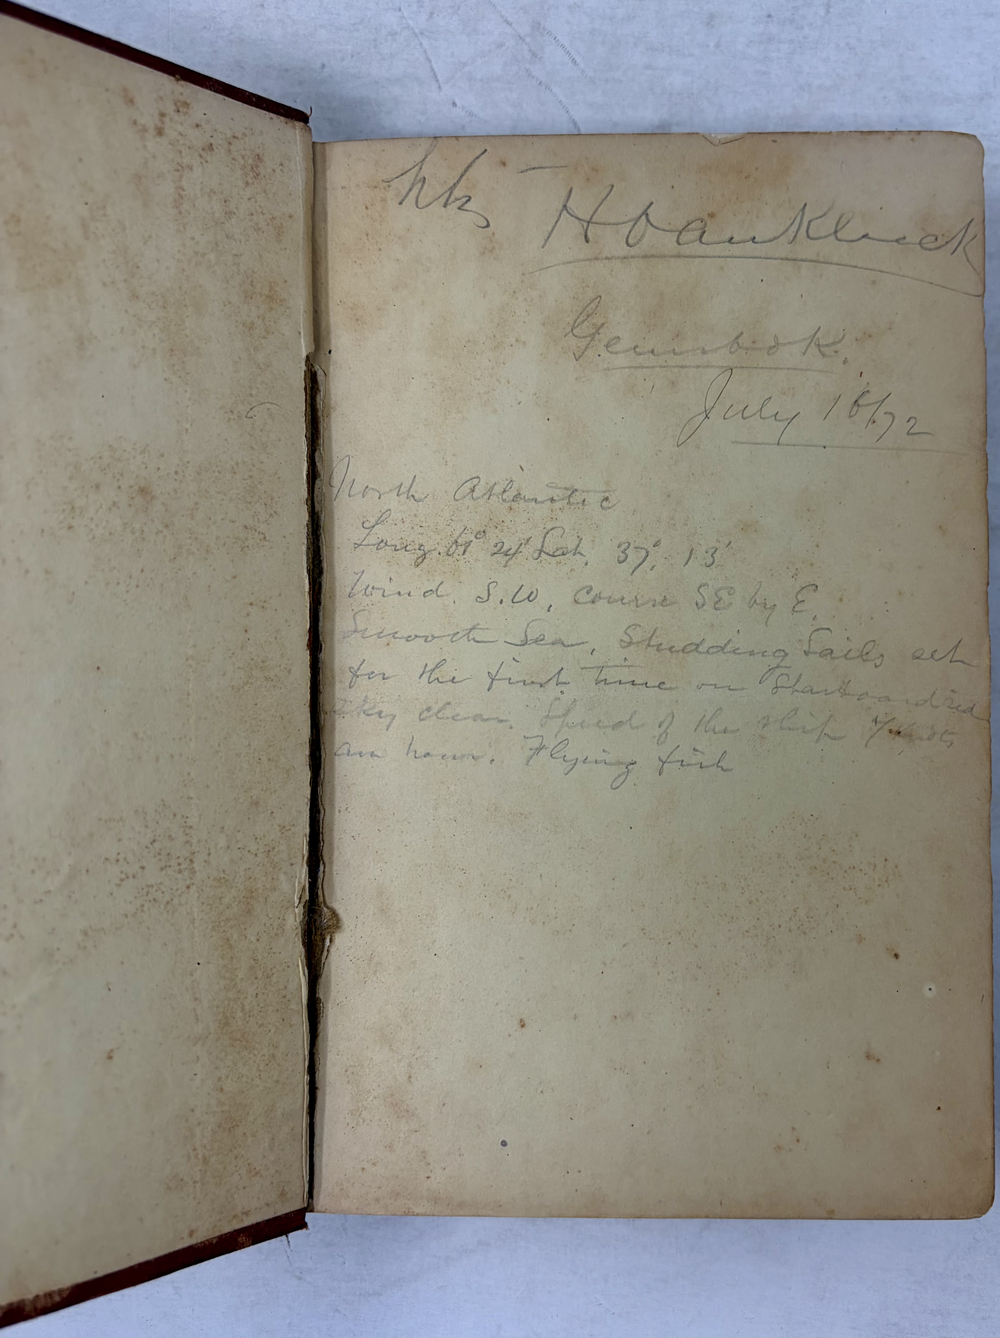 H van Kleeck
Gemsbok.
July 16/72
North Atlantic
Long. 61° 24' Lat. 37°, 13'
Wind. S.W, Course SE by E.
Smooth Sea, Studding Sails set
for the first time on Starboard side
Sky clear. Speed of the ship 7 knots
an hour. Flying fish